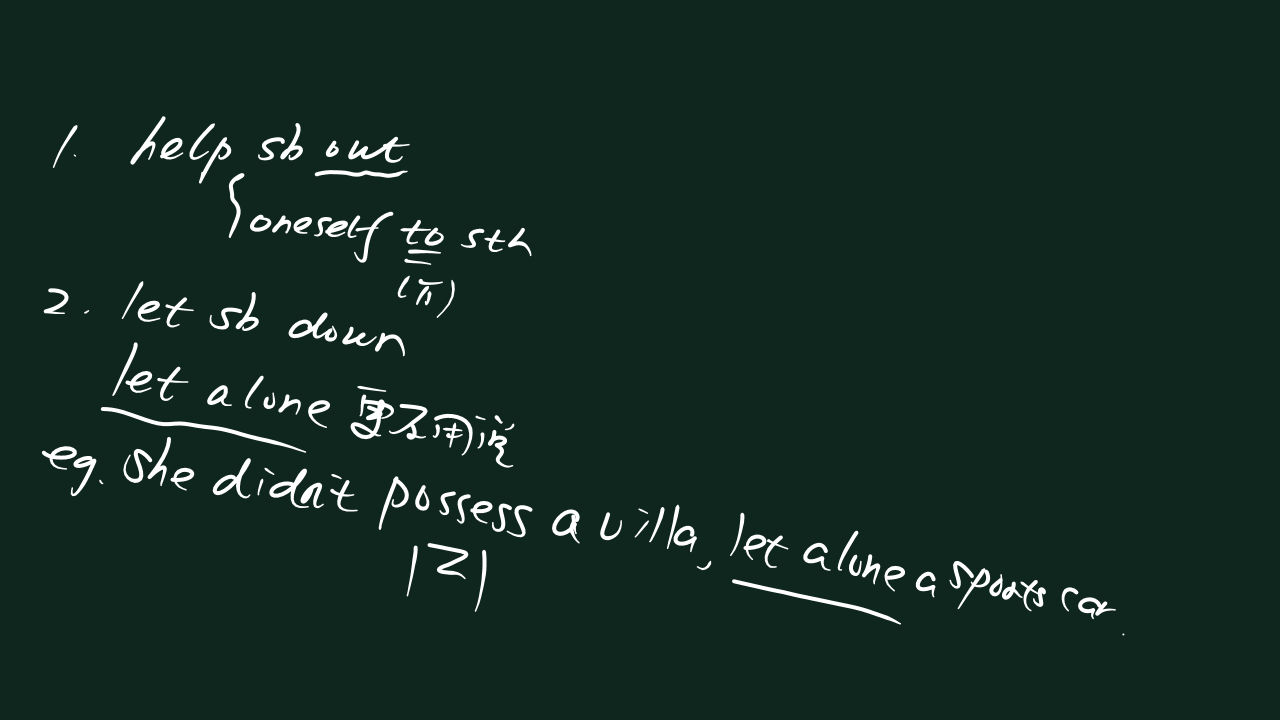 1. help sb out
oneself to sth
(介)
2. let sb down
let alone 更不用说
eg. She didn't possess a villa, let alone a sports car.
|Z|